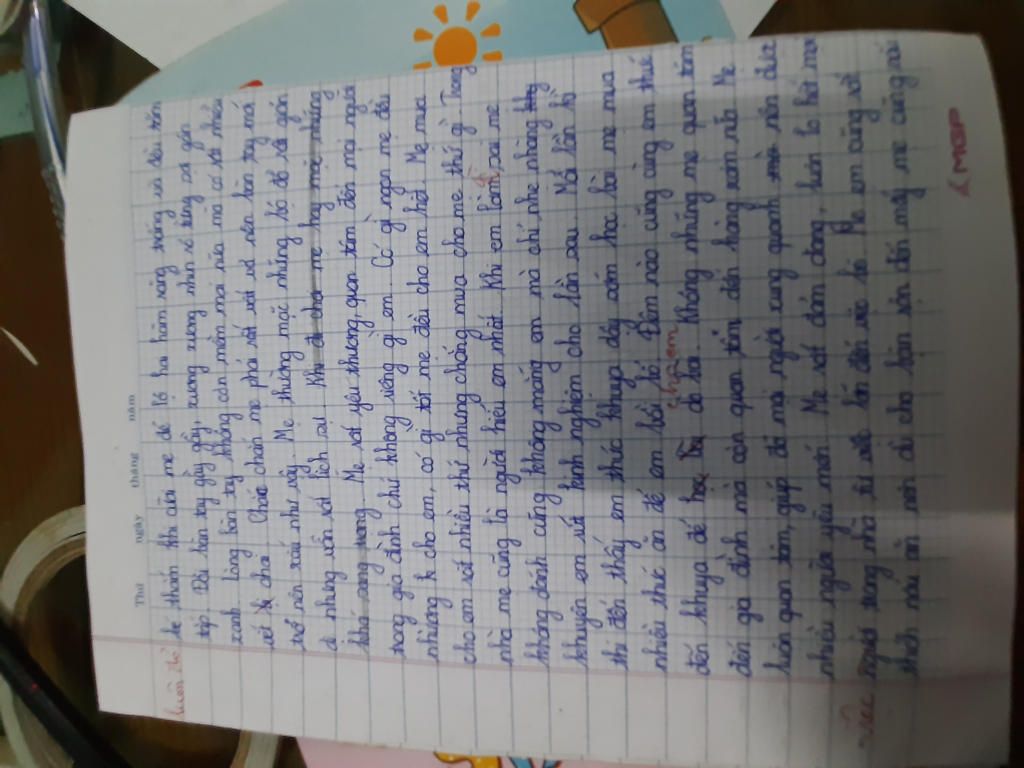 Thứ ngày tháng năm
luôn thò
le thoắn khi của mẹ để lộ hai hàm răng trắng và đều tăm
tắp. Đôi bàn tay gầy gầy, xương xương nhìn rõ từng cá gân
xanh. Lòng bàn tay không còn mềm mại nữa mà có rất nhiều
vết chai. Chắc chắn mẹ phải rất vất vả nên bàn tay mà
trở nên xấu như vậy. Mẹ thường mặc những bộ đồ rất giản
dị nhưng vẫn rất lịch sự. Khi đi chơi mẹ hay mặc những
khá sang trọng. Mẹ rất yêu thương, quan tâm đến mọi người
trong gia đình chứ không riêng gì em. Có gì ngon mẹ đều
nhường cho em, có gì tốt mẹ đều cho em hết. Mẹ mua
cho em rất nhiều thứ nhưng chẳng mua cho mẹ thứ gì. Trong
nhà mẹ cũng là người hiểu em nhất. Khi em làm sai mẹ
không đánh cũng không mắng em mà chỉ nhẹ nhàng
khuyên em rút kinh nghiệm cho lần sau. Mỗi lần kì
thi đến thấy em thức khuya dậy sớm học bài mẹ mua
nhiều thức ăn để em bồi bổ. Đêm nào cũng cùng em thức
cho em
đến khuya để học do bài. Không những mẹ quan tâm
đến gia đình mà còn quan tâm đến hàng xóm nữa. Mẹ
luôn quan tâm, giúp đỡ mọi người xung quanh nên được
nhiều người yêu mến. Mẹ rất đảm đang, luôn lo hết mọi
việc người trong nhà từ việc lớn đến việc bé. Mẹ em cũng rất
thích nấu ăn nên dù cho bận rộn đến mấy mẹ cũng nấu
MGP